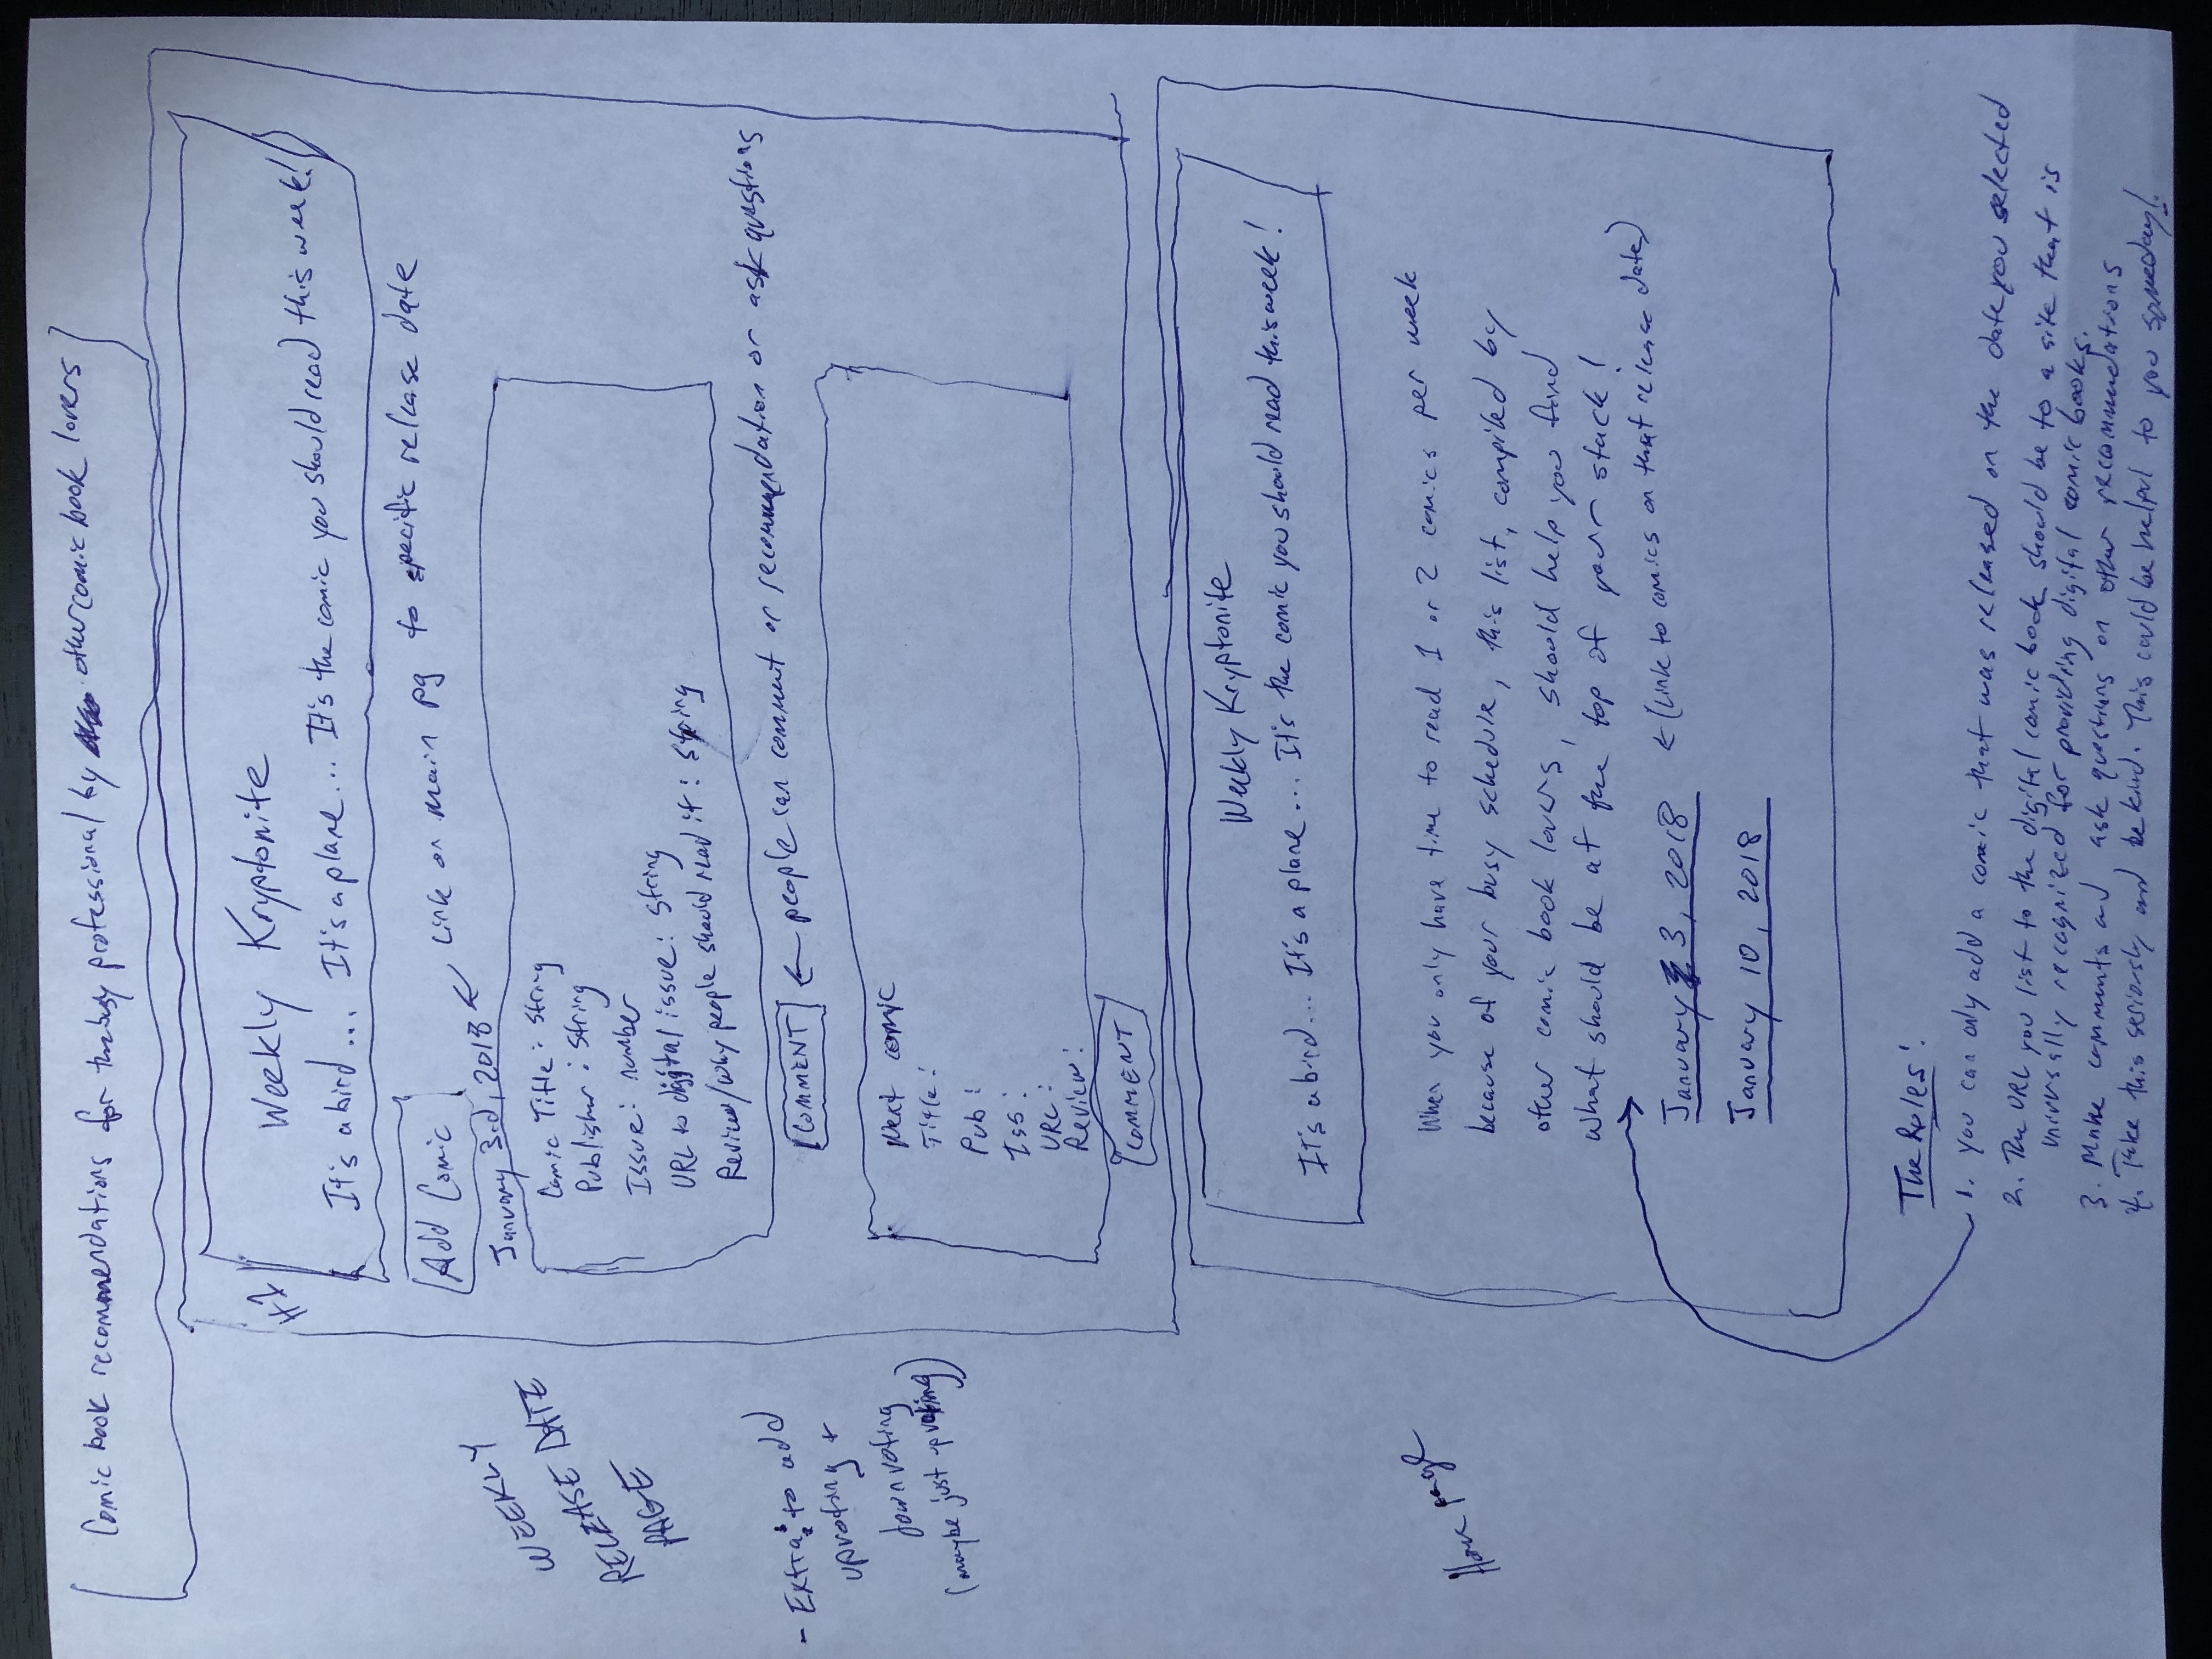 Comic book recommendations for the busy professional by other comic book lovers
H1
Weekly Kryptonite
It's a bird... It's a plane... It's the comic you should read this week!
Add Comic
← Link on main pg to specific release date
January 3rd, 2018
WEEKLY
RELEASE DATE
PAGE
Comic Title: String
Publisher: String
Issue: number
URL to digital issue: String
Review/why people should read it: String
- Extras to add
upvoting +
downvoting
(maybe just upvoting)
COMMENT ← people can comment or recommendation or ask questions
Next comic
Title:
Pub:
Iss:
URL:
Review:
COMMENT
Weekly Kryptonite
It's a bird... It's a plane... It's the comic you should read this week!
Home page
When you only have time to read 1 or 2 comics per week
because of your busy schedule, this list, compiled by
other comic book lovers, should help you find
what should be at the top of your stack!
January 3, 2018 ← (Link to comics on that release date)
January 10, 2018
The Rules!
1. You can only add a comic that was released on the date you selected
2. The URL you list to the digital comic book should be to a site that is
universally recognized for providing digital comic books.
3. Make comments and ask questions on other recommendations
4. Take this seriously and be kind. This could be helpful to you someday!